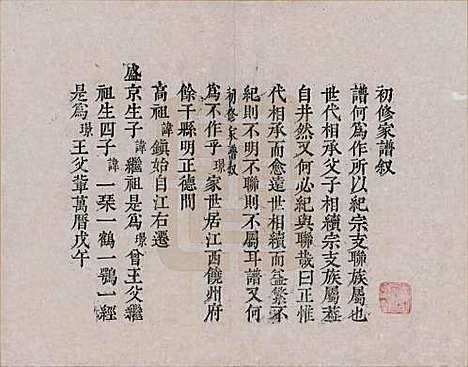 初修家譜叙
譜何為作所以紀宗支聯族屬也
世代相承父子相續宗支族屬
自井然又何必紀與聯哉曰正惟
代相承而愈遠世相續而益繁不
紀則不明不聯則不屬耳譜又何
初修家譜叙
為不作乎璟家世居江西饒州府
餘干縣明正德間
高祖諱鎮始自江右遷
盛京生子諱繼祖是為璟曾王父繼
祖生四子諱一琹一鶴一鶚一經
是為璟王父軰萬曆戊午